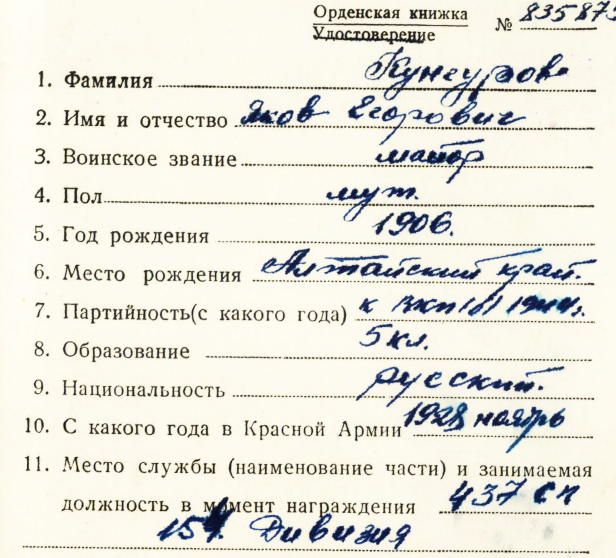 Орденская книжка № 835873
Удостоверение
1. Фамилия Кунгуров
2. Имя и отчество Яков Егорович
3. Воинское звание майор
4. Пол муж.
5. Год рождения 1906.
6. Место рождения Алтайский край.
7. Партийность(с какого года) к ВКП(б) 1944г.
8. Образование 5 кл.
9. Национальность русский.
10. С какого года в Красной Армии 1928 ноябрь
11. Место службы (наименование части) и занимаемая
должность в момент награждения 437 сп
154 Дивизия